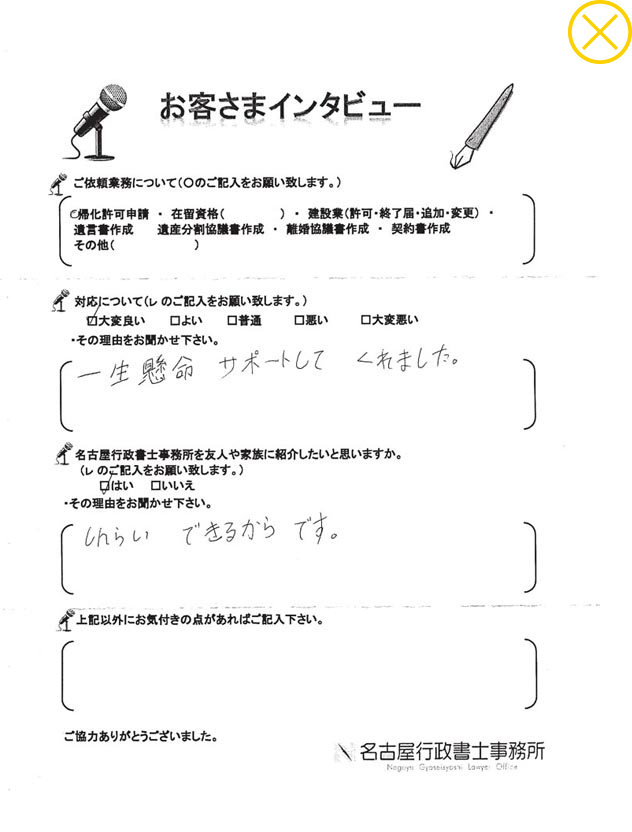 お客さまインタビュー
ご依頼業務について(○のご記入をお願い致します。)
帰化許可申請 ・ 在留資格( ) ・ 建設業(許可・終了届・追加・変更) ・
遺言書作成 遺産分割協議書作成 ・ 離婚協議書作成 ・ 契約書作成
その他( )
対応について(レ のご記入をお願い致します。)
☑大変良い □よい □普通 □悪い □大変悪い
・その理由をお聞かせ下さい。
一生懸命 サポートして くれました。
名古屋行政書士事務所を友人や家族に紹介したいと思いますか。
(レ のご記入をお願い致します。)
☑はい □いいえ
・その理由をお聞かせ下さい。
しんらい できるから です。
上記以外にお気付きの点があればご記入下さい。
ご協力ありがとうございました。
名古屋行政書士事務所
Nagoya Gyoseisyoshi Lawyer Office